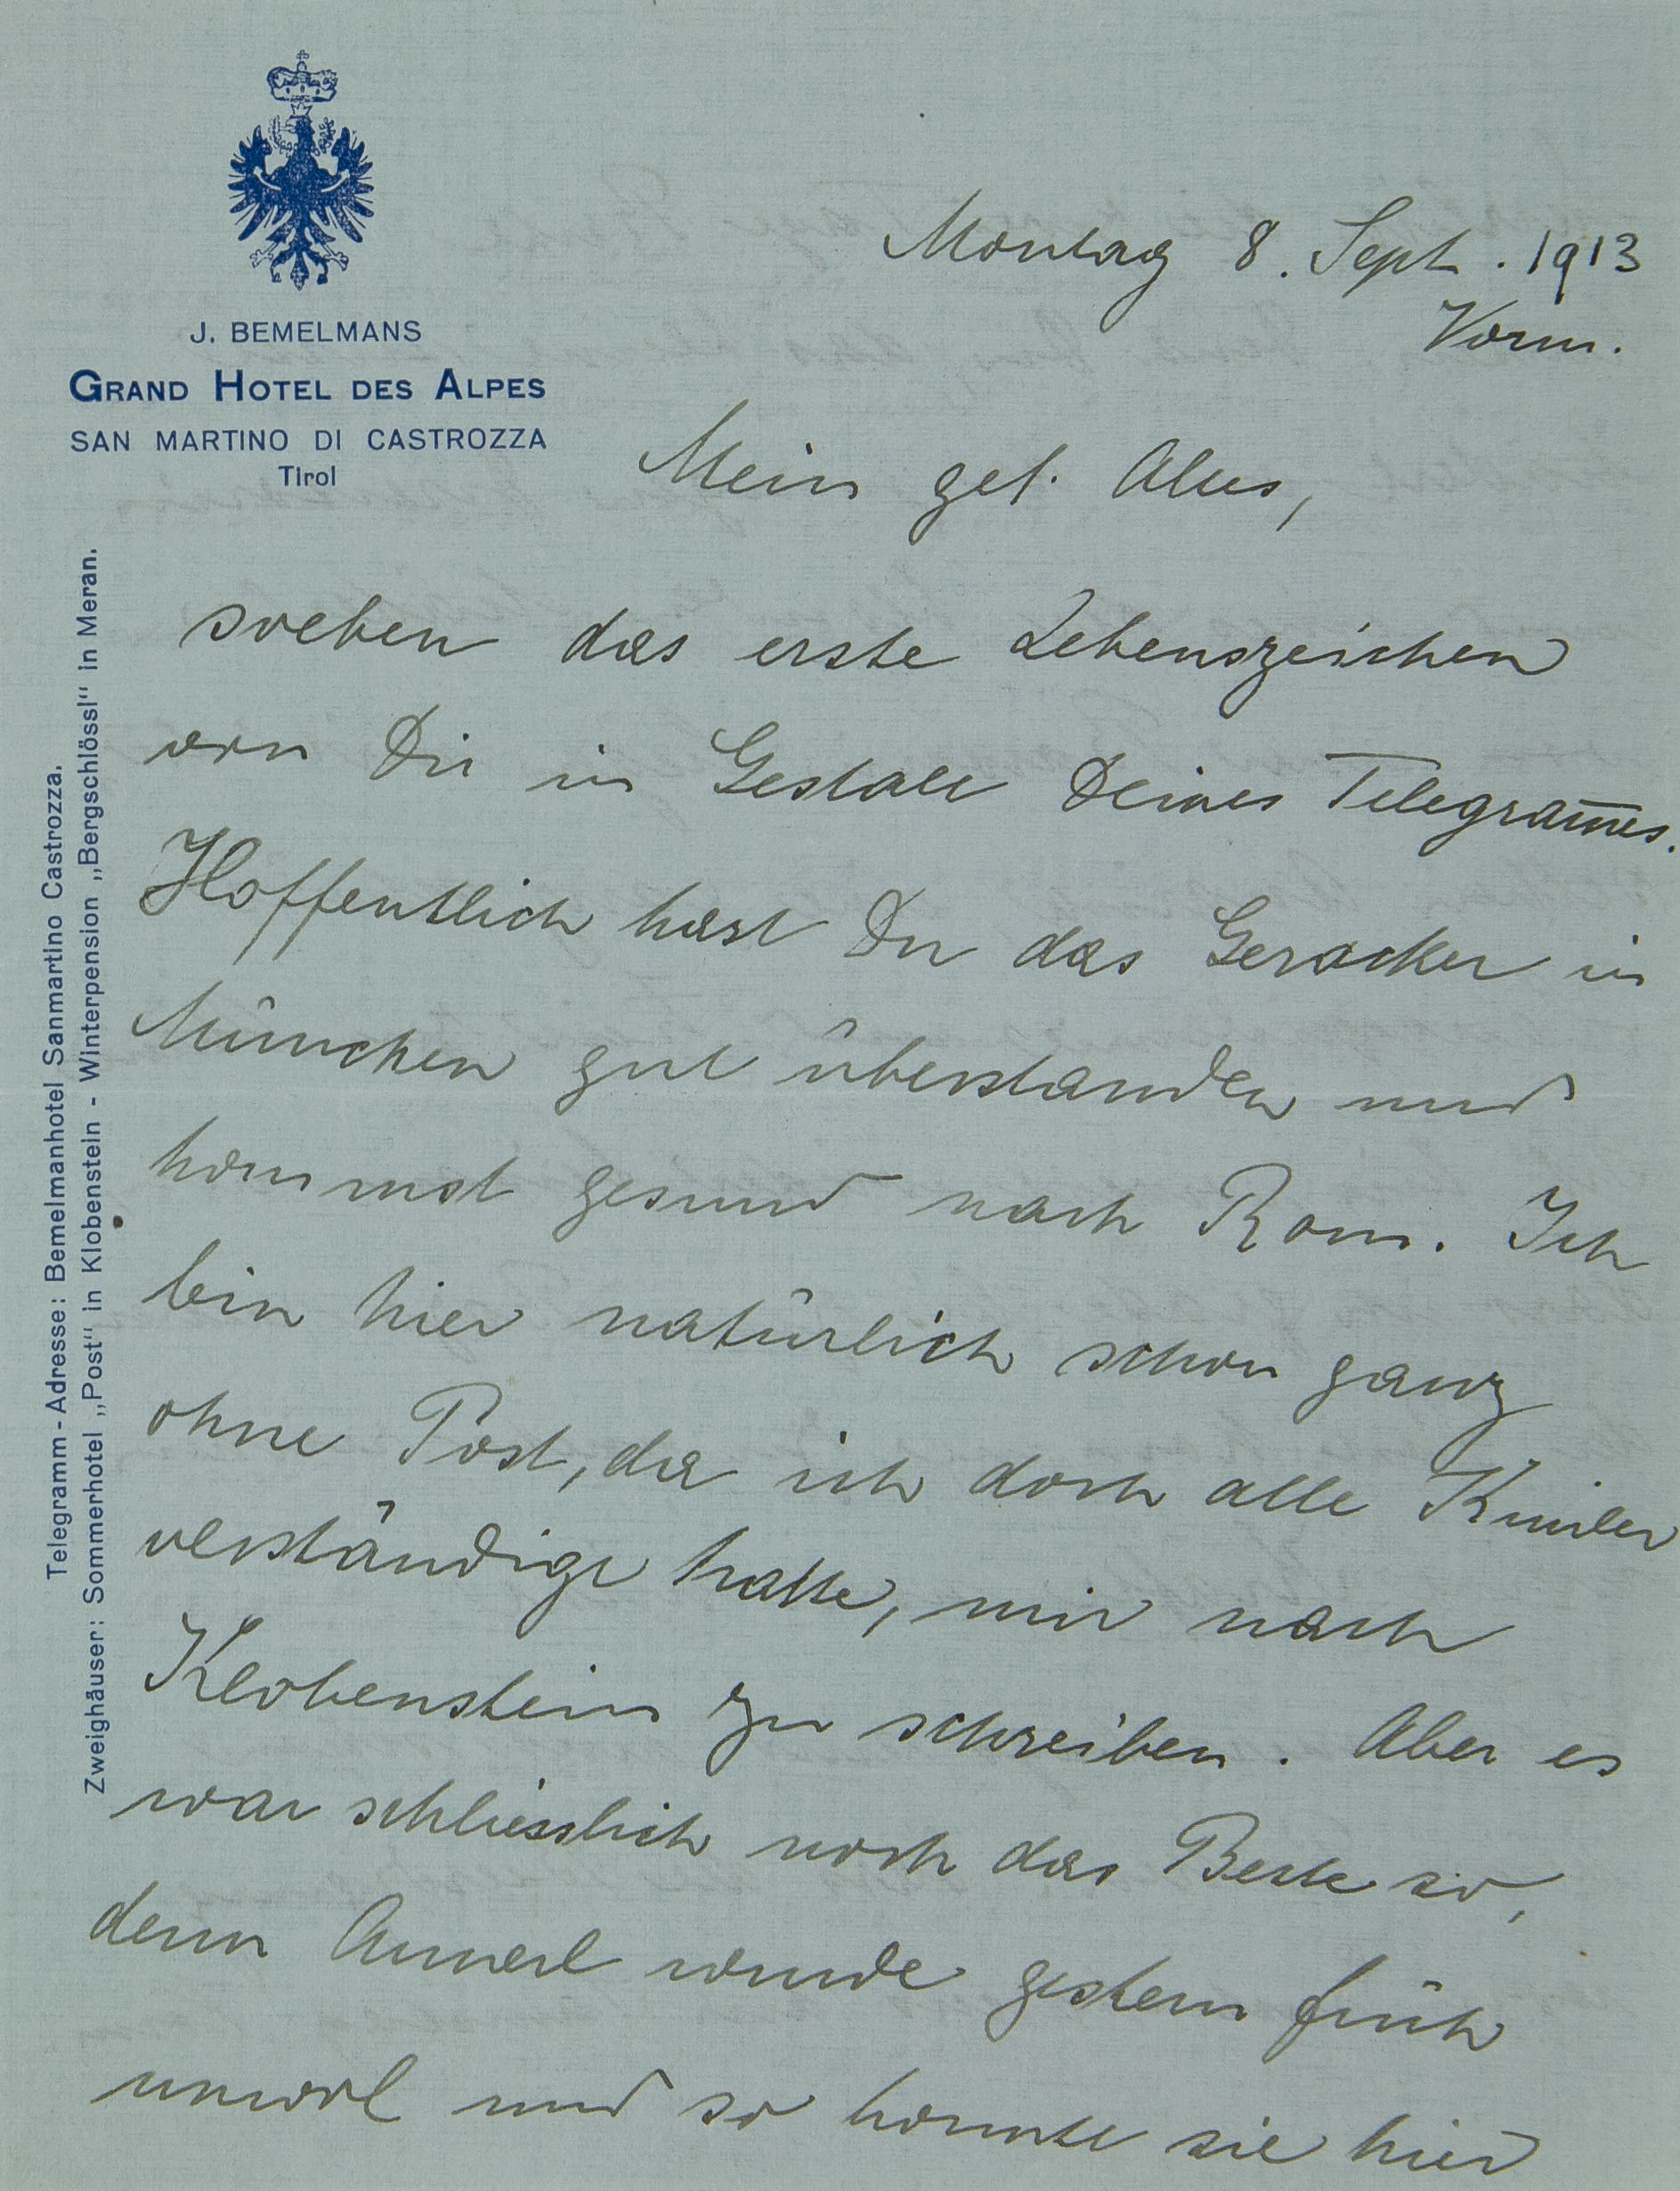 J. BEMELMANS
GRAND HOTEL DES ALPES
SAN MARTINO DI CASTROZZA
Tirol
Telegramm-Adresse: Bemelmanhotel Sanmartino Castrozza.
Zweighäuser: Sommerhotel „Post" in Klobenstein - Winterpension „Bergschlössl" in Meran.
Montag 8. Sept. 1913
Vorm.
Mein gel. Altes,
soeben das erste Lebenszeichen
von Dir in Gestalt Deines Telegram̅es.
Hoffentlich hast Du das Geracker in
München gut überstanden und
kommst gesund nach Rom. Ich
bin hier natürlich schon ganz
ohne Post, da ich doch alle Kinder
verständigt hatte, mir nach
Klobenstein zu schreiben. Aber es
war schliesslich noch das Beste so,
denn Annerl wurde gestern früh
unwol und so konnte sie hier